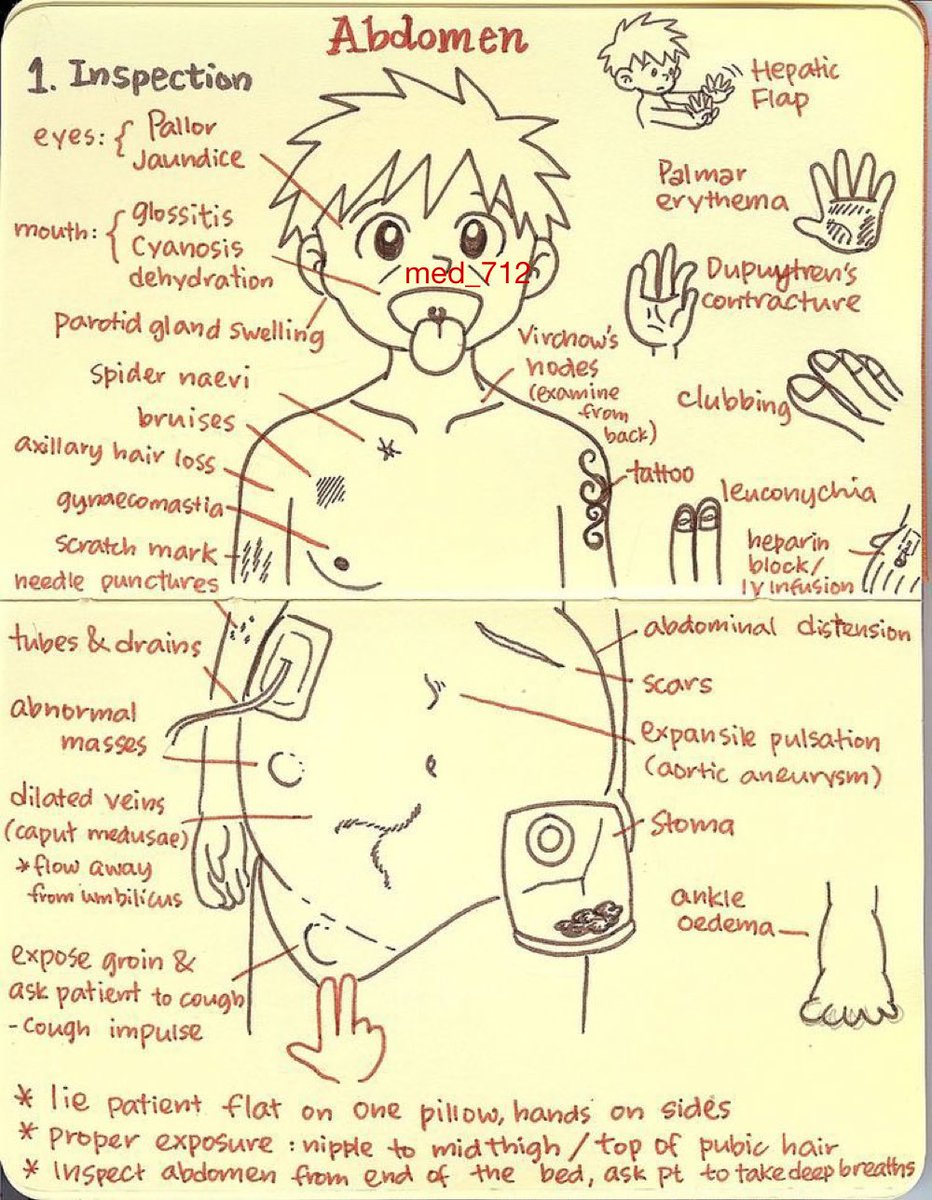 Abdomen
1. Inspection
eyes: { Pallor
Jaundice
mouth: { glossitis
Cyanosis
dehydration
parotid gland swelling
spider naevi
bruises
axillary hair loss
gynaecomastia
scratch mark
needle punctures
med_712
Virchow's
nodes
(examine
from
back)
tattoo
Hepatic
Flap
Palmar
erythema
Dupuytren's
contracture
clubbing
leuconychia
heparin
block/
IV infusion
tubes & drains
abnormal
masses
dilated veins
(caput medusae)
*flow away
from umbilicus
expose groin &
ask patient to cough
- cough impulse
abdominal distension
scars
expansile pulsation
(aortic aneurysm)
Stoma
ankle
oedema
* lie patient flat on one pillow, hands on sides
* Proper exposure : nipple to midthigh / top of pubic hair
* Inspect abdomen from end of the bed, ask pt to take deep breaths